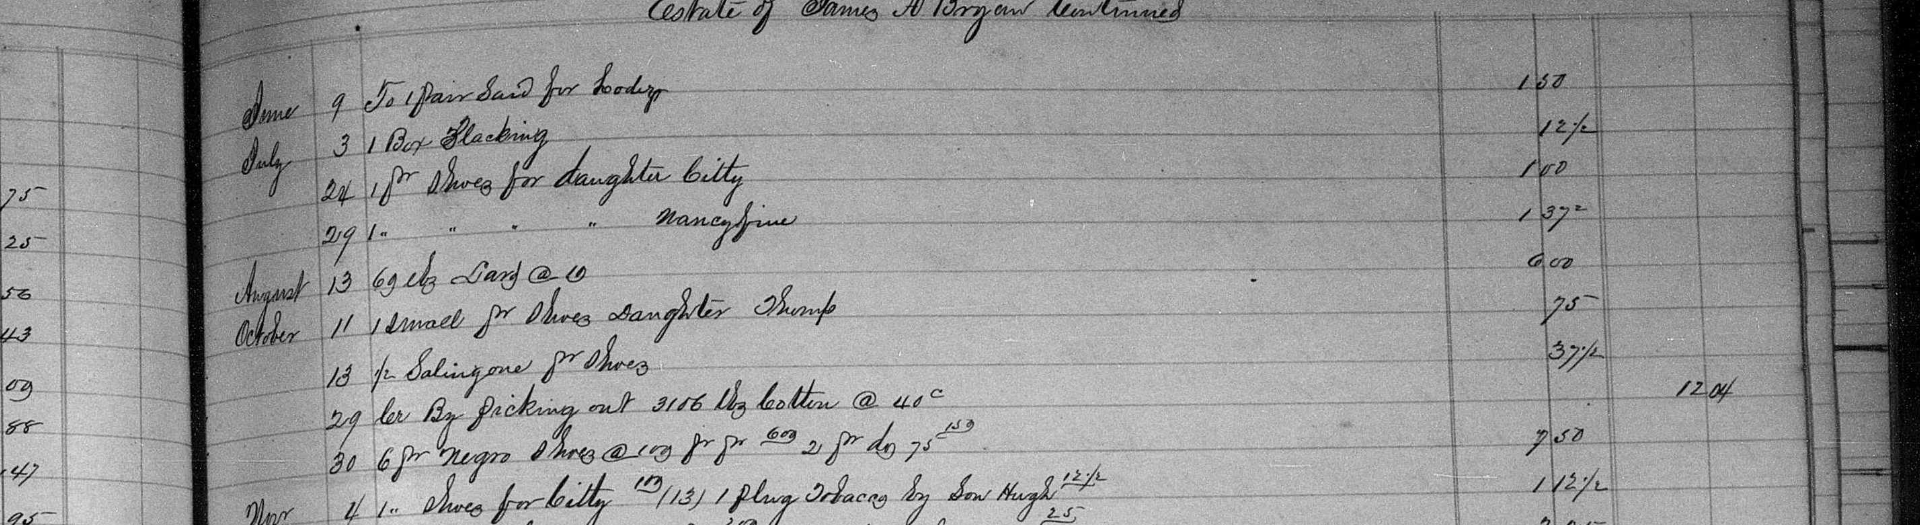 Estate of James A Bryan Continued
June 9 To 1 pair Said for 1 50
July 3 1 Box Blacking 12 1/2
24 1 pr Shoes for daughter Citty 1 00
29 1 " " " " Nancy fine 1 37 2
August 13 60 lbs Lard @ 10 6 00
October 11 1 Small pr Shoes Daughter Thump 75
13 1/2 Soling one pr Shoes 37 1/2
29 Cr By picking out 3106 lbs Cotton @ 40 c 12 04
30 6 pr Negro Shoes @ 100 pr pr 600 2 pr do 75 150 7 50
Novr 4 1 " Shoes for Citty 100 /(13) 1 plug Tobacco by Son Hugh 12 1/2 1 12 1/2
25
75
25
56
43
09
88
47
95